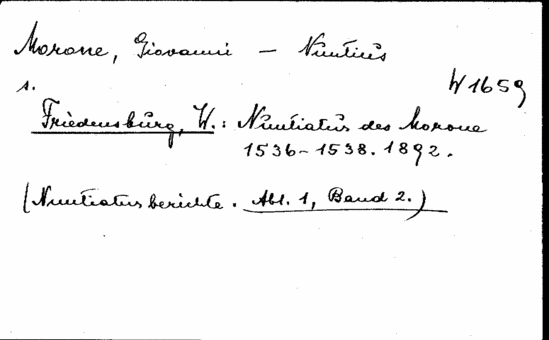 Morone, Giovanni — Nuntius
s.
W 1659
Friedensburg, W.: Nuntiatur des Morone
1536-1538. 1892.
(Nuntiaturberichte. Abt. 1, Band 2.)